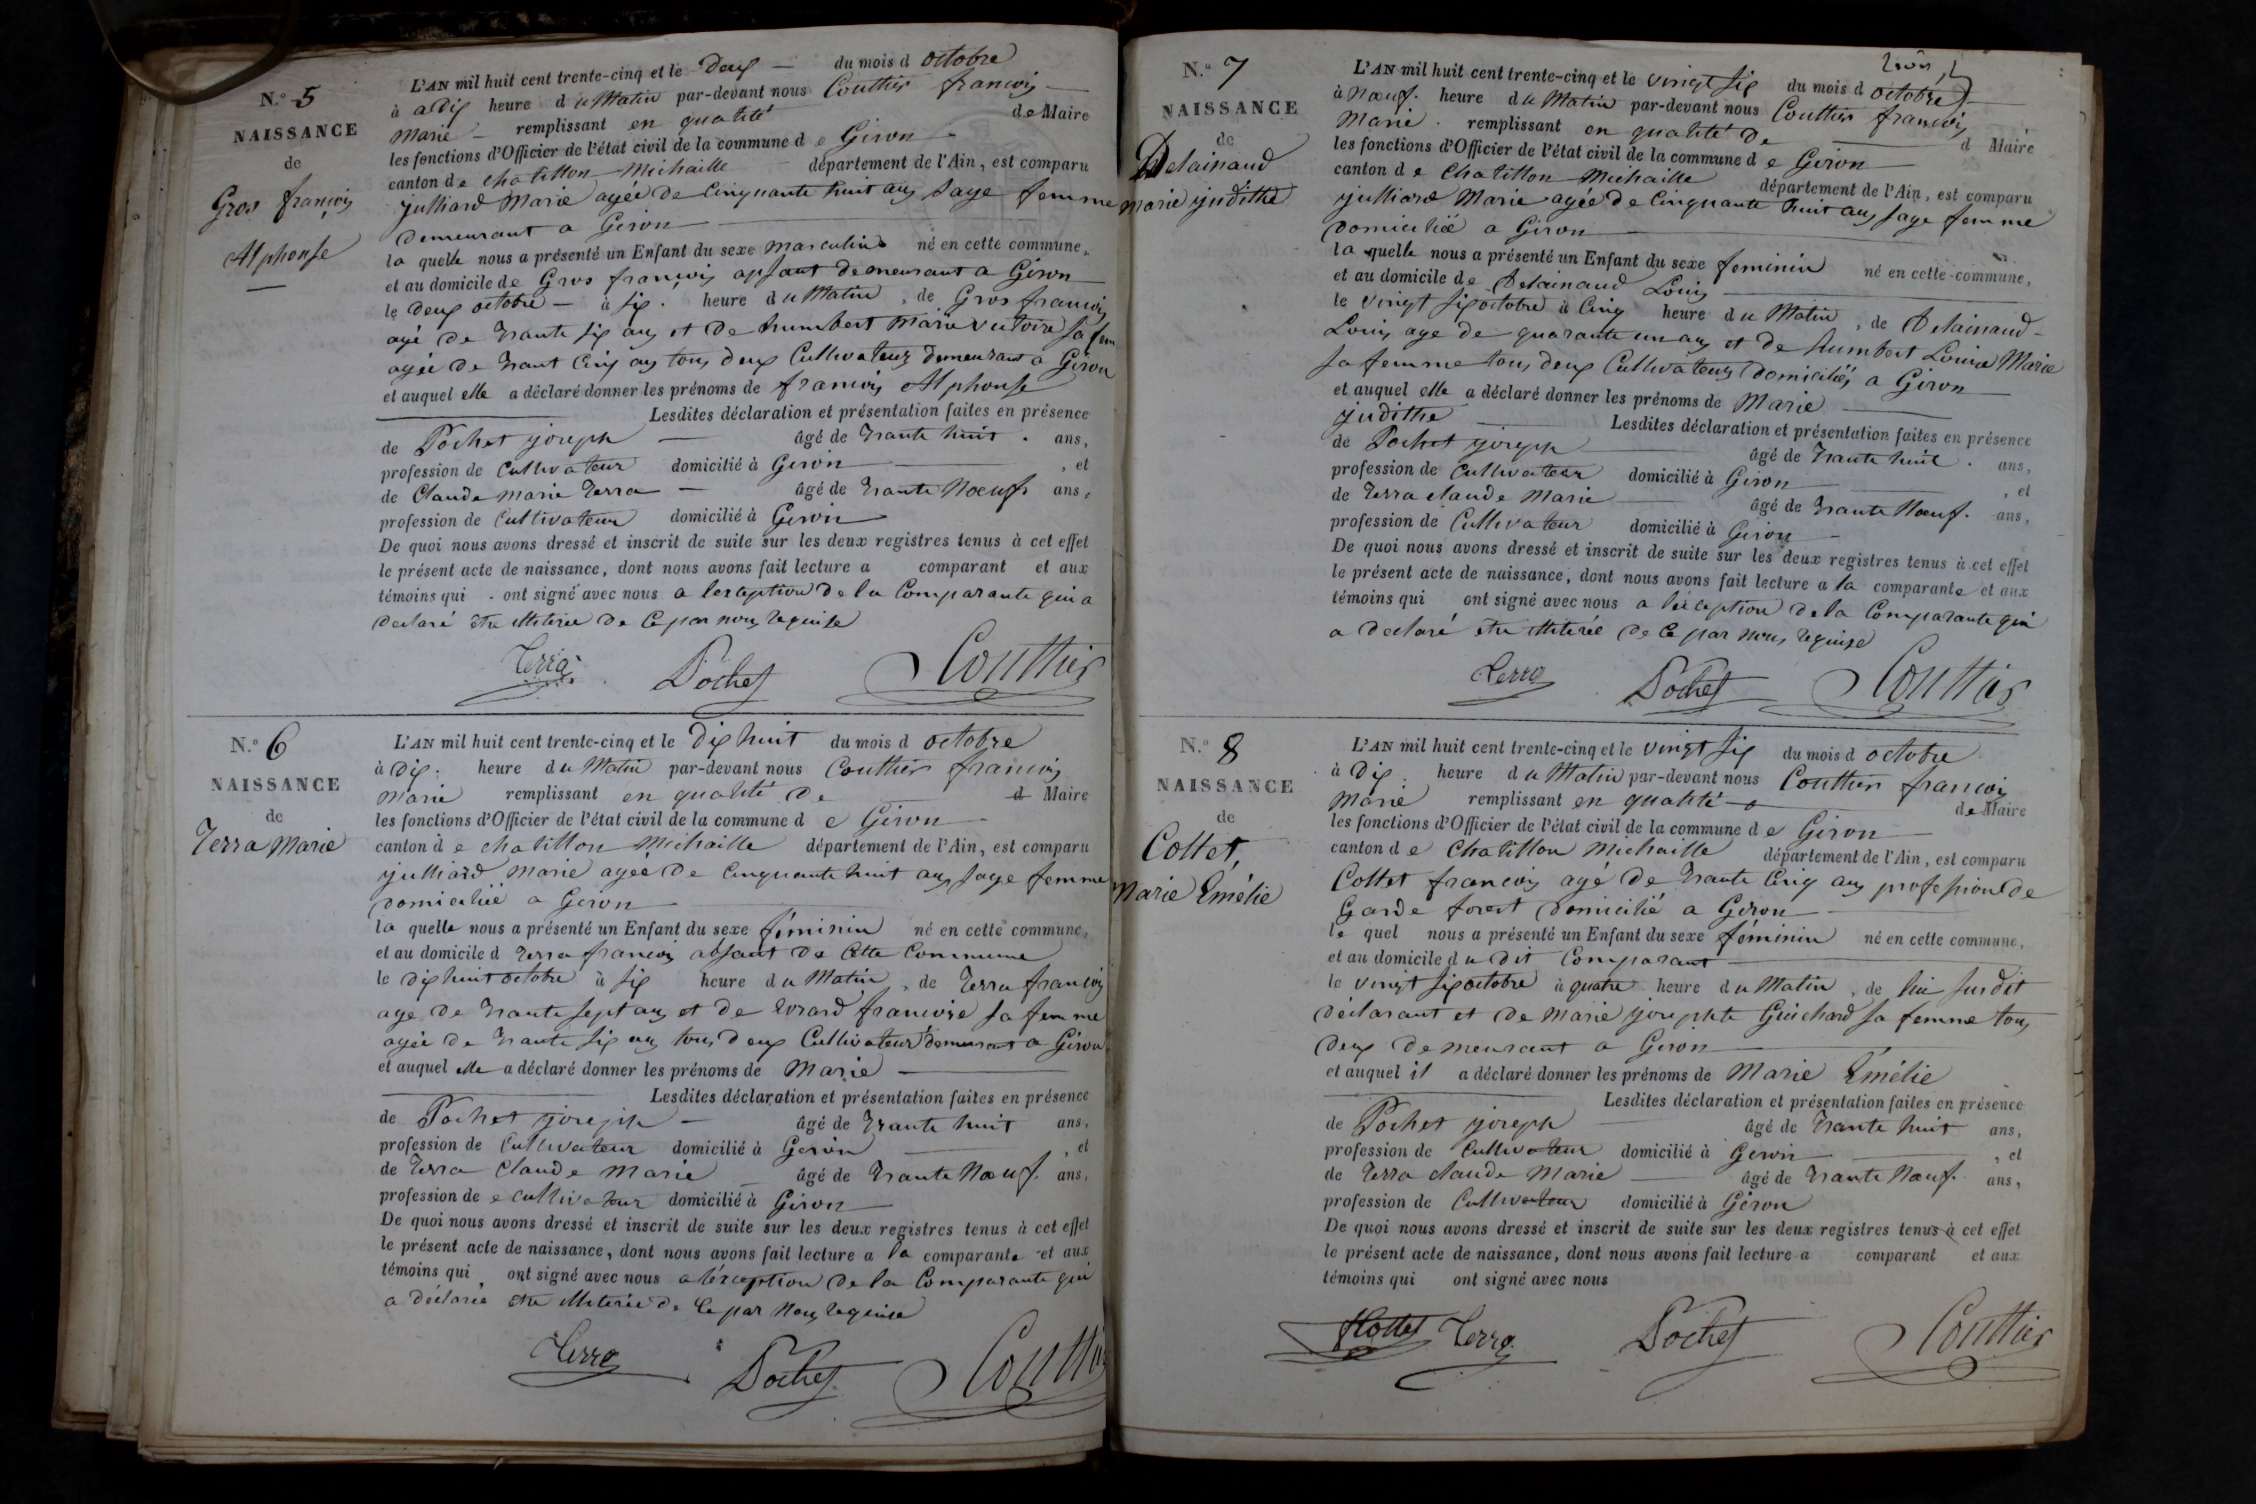 N.° 5
NAISSANCE
de
Gros françois
Alphonse
L'AN mil huit cent trente-cinq et le deux du mois d octobre
à a dix heure du Matin par-devant nous Couttier françois
Marie remplissant en qualité de Maire
les fonctions d'Officier de l'état civil de la commune de Giron
canton de chatillon Michaille département de l'Ain, est comparu
julliard Marie agée de Cinquante huit ans sage femme
demeurant a Giron
la quelle nous a présenté un Enfant du sexe masculin né en cette commune,
et au domicile de Gros françois absant demeurant a Giron
le deux octobre à six heure du Matin, de Gros françois
agé de trante six ans et de humbert Marie victoire sa fem
agée de trant Cinq ans tous deux Cultivateurs demeurant a Giron
et auquel elle a déclaré donner les prénoms de françois Alphonse
Lesdites déclaration et présentation faites en présence
de Pochet joseph âgé de trante huit ans,
profession de Cultivateur domicilié à Giron, et
de Claude marie Terra âgé de trante Nœuf ans,
profession de Cultivateur domicilié à Giron
De quoi nous avons dressé et inscrit de suite sur les deux registres tenus à cet effet
le présent acte de naissance, dont nous avons fait lecture a comparant et aux
témoins qui ont signé avec nous a lexception de la Comparante qui a
declaré etre illiterée de Ce par nous requise
Terra Pochet Couttier
N.° 6
NAISSANCE
de
Terra Marie
L'AN mil huit cent trente-cinq et le dix huit du mois d octobre
à dix heure du Matin par-devant nous Couttier françois
Marie remplissant en qualité de d Maire
les fonctions d'Officier de l'état civil de la commune de Giron
canton de chatillon Michaille département de l'Ain, est comparu
julliard marie agée de Cinquante huit ans sage femme
domiciliée a Giron
la quelle nous a présenté un Enfant du sexe féminin né en cette commune,
et au domicile d Terra françois absant de Cette Commune
le dix huit octobre à six heure du Matin, de Terra françois
age de trante sept ans et de Evrard françoise sa femme
agée de trante six ans tous deux Cultivateur demeurant a Giron
et auquel elle a déclaré donner les prénoms de Marie
Lesdites déclaration et présentation faites en présence
de Pochet joseph âgé de trante huit ans,
profession de Cultivateur domicilié à Giron, et
de Terra Claude Marie âgé de trante Nœuf ans,
profession de cultivateur domicilié à Giron
De quoi nous avons dressé et inscrit de suite sur les deux registres tenus à cet effet
le présent acte de naissance, dont nous avons fait lecture a la comparante et aux
témoins qui ont signé avec nous a léxception de la Comparante qui
a déclaré etre illiterée de Ce par Nous requise
Terra Pochet Couttier
N.° 7
NAISSANCE
de
Delainaud
marie judithe
L'AN mil huit cent trente-cinq et le vingt six du mois d octobre
à Nœuf heure du Matin par-devant nous Couttier françois
Marie remplissant en qualité de d Maire
les fonctions d'Officier de l'état civil de la commune de Giron
canton de Chatillon Michaille département de l'Ain, est comparu
julliard Marie agée de Cinquante huit ans sage femme
domiciliée a Giron
la quelle nous a présenté un Enfant du sexe feminin né en cette commune,
et au domicile de Delainaud Louis
le vingt six octobre à Cinq heure du Matin, de Delainaud
Louis age de quarante un ans et de humbert Louise Marie
sa femme tous deux Cultivateurs domiciliés a Giron
et auquel elle a déclaré donner les prénoms de Marie
judithe Lesdites déclaration et présentation faites en présence
de Pochet joseph âgé de trante huit ans,
profession de Cultivateur domicilié à Giron, et
de Terra claude Marie âgé de trante Nœuf ans,
profession de Cultivateur domicilié à Giron
De quoi nous avons dressé et inscrit de suite sur les deux registres tenus à cet effet
le présent acte de naissance, dont nous avons fait lecture a la comparante et aux
témoins qui ont signé avec nous a léxception de la Comparante qui
a declaré etre illiterée de Ce par Nous requise
Terra Pochet Couttier
N.° 8
NAISSANCE
de
Cottet,
Marie Emélie
L'AN mil huit cent trente-cinq et le vingt six du mois d octobre
à dix heure du Matin par-devant nous Couttier françois
Marie remplissant en qualité de Maire
les fonctions d'Officier de l'état civil de la commune de Giron
canton de Chatillon Michaille département de l'Ain, est comparu
Cottet françois agé de trante Cinq ans profession de
Garde forest domicilié a Giron
le quel nous a présenté un Enfant du sexe féminin né en cette commune,
et au domicile du dit Comparant
le vingt six octobre à quatre heure du Matin, de lui susdit
déclarant et de Marie josephte Guichard sa femme tous
deux demeurant a Giron
et auquel il a déclaré donner les prénoms de Marie Emélie
Lesdites déclaration et présentation faites en présence
de Pochet joseph âgé de trante huit ans,
profession de Cultivateur domicilié à Giron, et
de Terra claude Marie âgé de trante Nœuf ans,
profession de Cultivateur domicilié à Giron
De quoi nous avons dressé et inscrit de suite sur les deux registres tenus à cet effet
le présent acte de naissance, dont nous avons fait lecture a comparant et aux
témoins qui ont signé avec nous
fCottet Terra Pochet Couttier